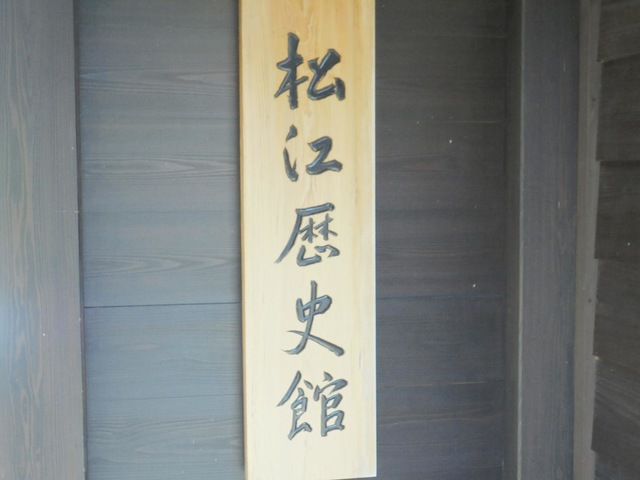 松江歴史館